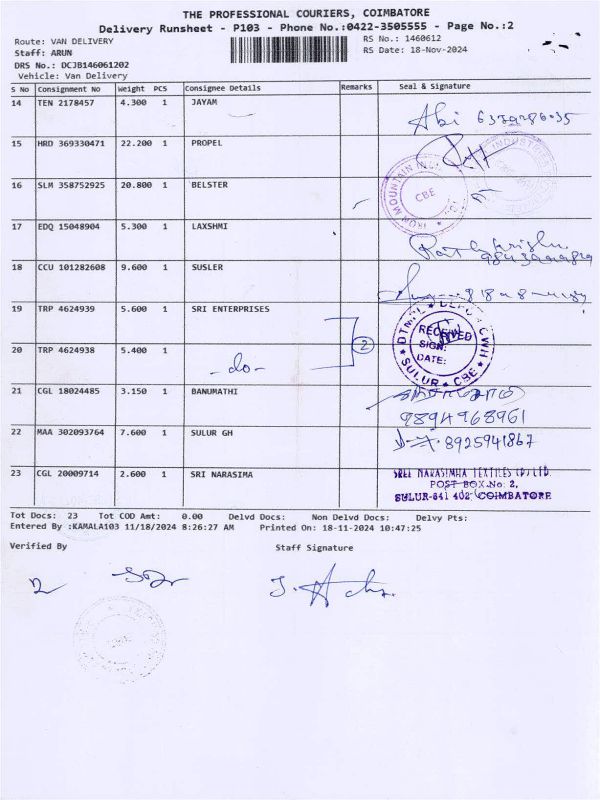 THE PROFESSIONAL COURIERS, COIMBATORE
Delivery Runsheet - P103 - Phone No.:0422-3505555 - Page No.:2
Route: VAN DELIVERY
RS No.: 1460612
Staff: ARUN
RS Date: 18-Nov-2024
DRS No.: DCJB146061202
Vehicle: Van Delivery
S No Consignment No Weight PCS Consignee Details Remarks Seal & Signature
14 TEN 2178457 4.300 1 JAYAM
Abi
15 HRD 369330471 22.200 1 PROPEL
16 SLM 358752925 20.800 1 BELSTER
IRON MOUNTAIN
CBE
17 EDQ 15048904 5.300 1 LAXSHMI
18 CCU 101282608 9.600 1 SUSLER
19 TRP 4624939 5.600 1 SRI ENTERPRISES
RECEIVED
SIGN:
DATE:
SULUR CBE
20 TRP 4624938 5.400 1 -do- 2
21 CGL 18024485 3.150 1 BANUMATHI
9894968961
22 MAA 302093764 7.600 1 SULUR GH
8925941867
23 CGL 20009714 2.600 1 SRI NARASIMA
SREE NARASIMHA TEXTILES (P) LTD.
POST BOX No: 2,
SULUR-641 402 COIMBATORE
Tot Docs: 23 Tot COD Amt: 0.00 Delvd Docs: Non Delvd Docs: Delvy Pts:
Entered By :KAMALA103 11/18/2024 8:26:27 AM Printed On: 18-11-2024 10:47:25
Verified By
Staff Signature